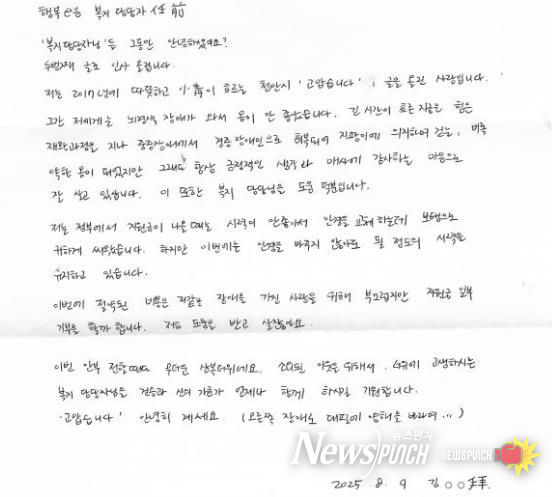 행복e음 복지 담당자 任前
'복지담당자님'들 그동안 안녕하셨어요?
두번째 글로 인사 올립니다.
저는 2017년에 따뜻하고 小青이 흐르는 천안시 '고맙습니다' 글을 올린 사람입니다.
그간 저에게는 뇌경색 장애가 와서 몸이 안 좋았습니다. 긴 시간이 흐른 지금은 힘든
재활과정을 지나 중증장애에서 경증장애인으로 회복되어 지팡이에 의지하여 걷는, 비록
약한 몸이 되었지만 그래도 항상 긍정적인 생각과 매사에 감사하는 마음으로
잘 살고 있습니다. 이 또한 복지 담당님들 도움 덕분입니다.
저는 정부에서 지원금이 나올 때는 시력이 안좋아서 안경을 교체하는데 보탬으로
귀하게 써왔습니다. 하지만 이번에는 안경을 바꾸지 않아도 될 정도의 시력을
유지하고 있습니다.
이번에 절약된 비용은 저같은 장애를 가진 사람을 위해 부끄럽지만 지원금 일부
기부를 할까 합니다. 저도 도움을 받고 살잖아요.
이번 안부 전할때는 무더운 삼복더위네요. 소외된 이웃을 위해서 수고에 고생하시는
복지 담당자님들 건승과 신의 가호가 언제나 함께 하시길 기원합니다.
'고맙습니다' 안녕히 계세요. (오른쪽 장애로 대필에 양해를 바라며...)
2025. 8. 9 김○○拜.
뉴스펀치
NewsPunch
NEWSPUNCH